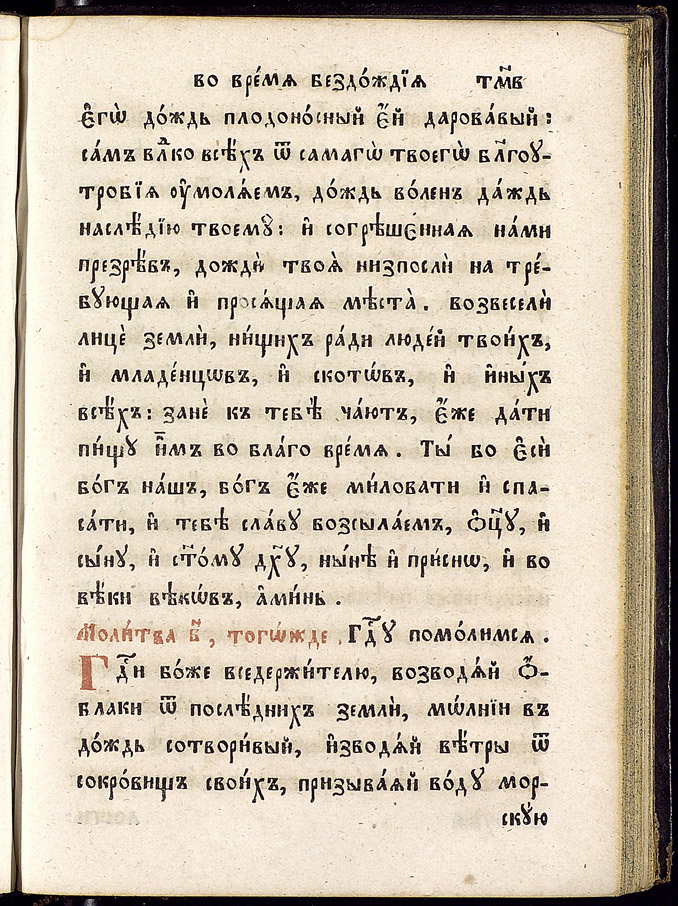 во вре́мѧ бездо́ждїѧ тм҃в
є҆гѡ̀ до́ждь плодоно́сный є҆́й дарова́вый:
са́мъ влⷣко всѣ́хъ ѿ самагѡ̀ твоегѡ̀ бл҃гоу-
тробїѧ ᲂу҆молѧ́емъ, до́ждь во́ленъ да́ждь
наслѣ́дїю твоемꙋ̀: и҆ согрѣше́ннаѧ на́ми
презрѣ́въ, дождѝ твоѧ̀ низпослѝ на тре́-
бꙋющаѧ и҆ просѧ́щаѧ мѣста̀. возвеселѝ
лицѐ землѝ, ни́щихъ ра́ди люде́й твои́хъ,
и҆ младе́нцѡвъ, и҆ скотѡ́въ, и҆ и҆ны́хъ
всѣ́хъ: занѐ къ тебѣ̀ ча́ютъ, є҆́же да́ти
пи́щꙋ и҆̀мъ во бла́го вре́мѧ. Ты́ бо є҆сѝ
бо́гъ на́шъ, бо́гъ є҆́же ми́ловати и҆ спа-
са́ти, и҆ тебѣ̀ сла́вꙋ возсыла́емъ, ѻ҆ц҃ꙋ̀, и҆
сы́нꙋ, и҆ ст҃о́мꙋ дх҃ꙋ, ны́нѣ и҆ при́снѡ, и҆ во
вѣ́ки вѣкѡ́въ, а҆ми́нь.
Моли́тва в҃, тогѡ́жде. Гдⷭ҇ꙋ помо́лимсѧ.
Гдⷭ҇и бо́же вседержи́телю, возводѧ́й ѻ҆́-
блаки ѿ послѣ́днихъ землѝ, мѡ́лнїи въ
до́ждь сотвори́вый, и҆зводѧ́й вѣ́тры ѿ
сокро́вищъ свои́хъ, призыва́ѧй во́дꙋ мор-
скꙋ́ю